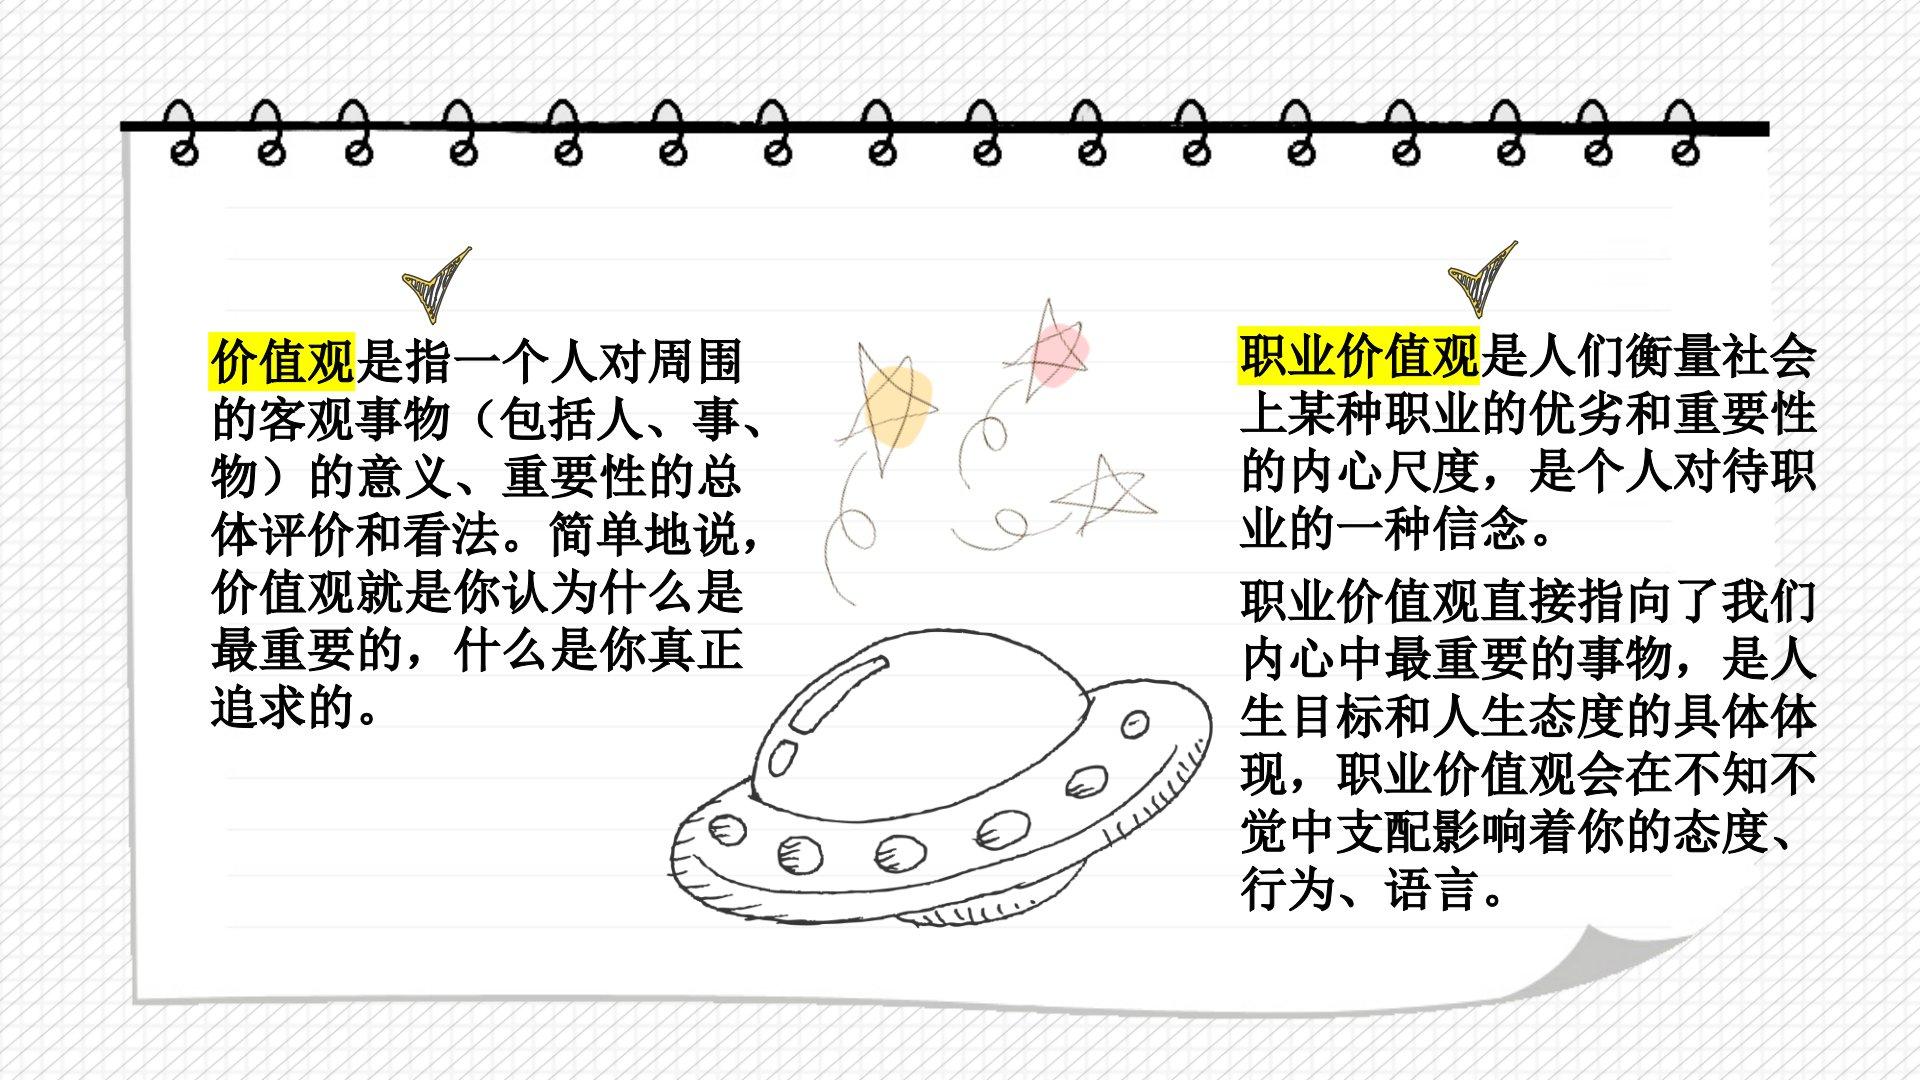 价值观是指一个人对周围
的客观事物（包括人、事、
物）的意义、重要性的总
体评价和看法。简单地说，
价值观就是你认为什么是
最重要的，什么是你真正
追求的。
职业价值观是人们衡量社会
上某种职业的优劣和重要性
的内心尺度，是个人对待职
业的一种信念。
职业价值观直接指向了我们
内心中最重要的事物，是人
生目标和人生态度的具体体
现，职业价值观会在不知不
觉中支配影响着你的态度、
行为、语言。